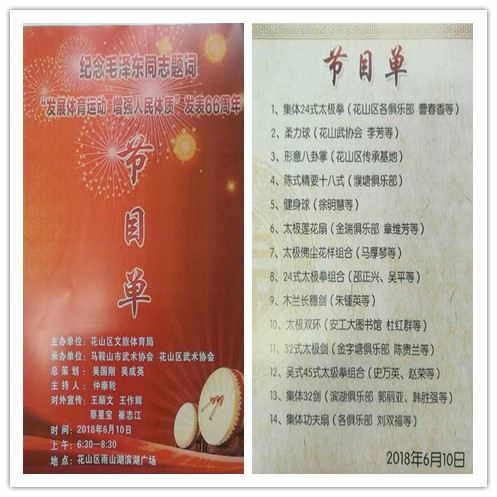 纪念毛泽东同志题词
“发展体育运动 增强人民体质”发表66周年
节目单
主办单位：花山区文旅体育局
承办单位：马鞍山市武术协会 花山区武术协会
总策划：吴国刚 吴成英
主持人：仲崇轮
对外宣传：王丽文 王作辉
蔡星宝 崔志江
时间：2018年6月10日
上午：6:30—8:30
地点：花山区雨山湖滨湖广场
节目单
1、集体24式太极拳（花山区各俱乐部 曹春香等）
2、柔力球（花山武协会 李芳等）
3、形意八卦掌（花山区传承基地）
4、陈式精要十八式（濮塘俱乐部）
5、健身球（徐明慧等）
6、太极莲花扇（金瑞俱乐部 章维芳等）
7、太极佛尘花样组合（马厚琴等）
8、24式太极拳组合（邵正兴、吴平等）
9、木兰长穗剑（朱锺英等）
10、太极双环（安工大图书馆 杜红群等）
11、32式太极剑（金字塘俱乐部 陈贵兰等）
12、吴式45式太极拳组合（史万英、赵荣等）
13、集体32剑（滨湖俱乐部 郭丽亚、韩胜强等）
14、集体功夫扇（各俱乐部 刘双福等）
2018年6月10日